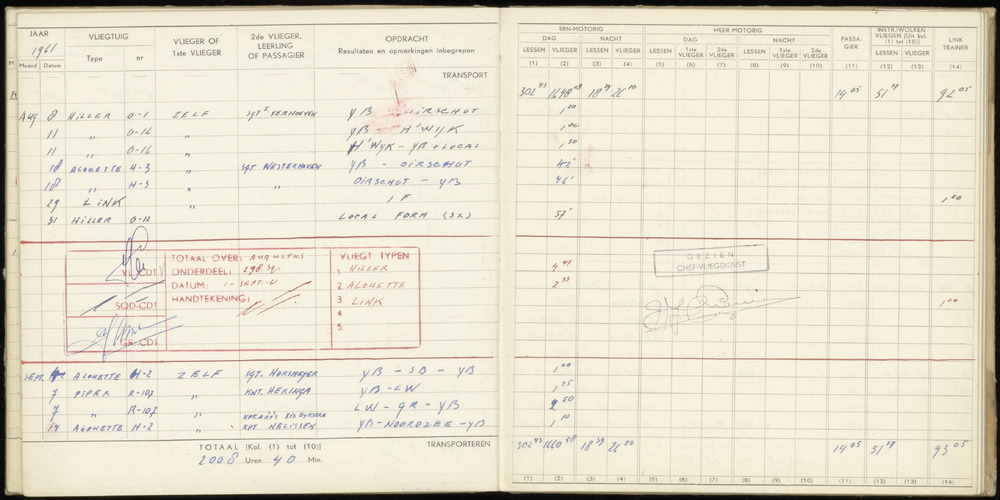 JAAR
1961
Maand Datum
VLIEGTUIG
Type nr
VLIEGER OF
1ste VLIEGER
2de VLIEGER,
LEERLING
OF PASSAGIER
OPDRACHT
Resultaten en opmerkingen inbegrepen
TRANSPORT
Aug 8 HILLER O-1 ZELF SGT I VERHOEVEN YB OIRSCHOT
11 " O-16 " YB - H'WIJK
11 " O-16 " H'WYK - YB + LOCAL
18 ALOUETTE H-3 " SGT WESTERHOVEN YB - OIRSCHOT
18 " H-3 " " OIRSCHOT - YB
29 LINK " IF
31 HILLER O-12 LOCAL FORM
VL-CDT
SQD-CDT
GR-CDT
TOTAAL OVER: AUGUSTUS
ONDERDEEL: 298 Sq.
DATUM: 1-SEPT.-61
HANDTEKENING:
VLIEGT TYPEN
1. HILLER
2. ALOUETTE
3. LINK
4.
5.
SEPT. ALOUETTE H-2 ZELF SGT. HORSMEYER YB - SB - YB
7 PIPER R-107 " KNT. HERINGA YB - LW
7 " R-107 " LW - GR - YB
14 ALOUETTE H-2 " KPT NELISSEN YB - NOORDZEE - YB
TOTAAL [Kol. (1) tot (10)]
2008 Uren 40 Min.
TRANSPORTEREN
EEN-MOTORIG
DAG NACHT
LESSEN VLIEGER LESSEN VLIEGER
(1) (2) (3) (4)
MEER MOTORIG
DAG NACHT
LESSEN 1ste VLIEGER 2de VLIEGER LESSEN 1ste VLIEGER 2de VLIEGER
(5) (6) (7) (8) (9) (10)
PASSA-
GIER
(11)
INSTR./WOLKEN
VLIEGEN [Uit kol.
(1) tot (10)]
LESSEN VLIEGER
(12) (13)
LINK
TRAINER
(14)
302 45 18 39 26 20 14 05 51 92 05
1 00
1 30
42'
46'
1 00
57'
4 47
2 33
GEZIEN
CHEF-VLIEGDIENST
1 00
1 00
1 25
2 50
1 10
302 45 1660 58 18 39 26 20 14 05 51 93 05
(1) (2) (3) (4) (5) (6) (7) (8) (9) (10) (11) (12) (13) (14)